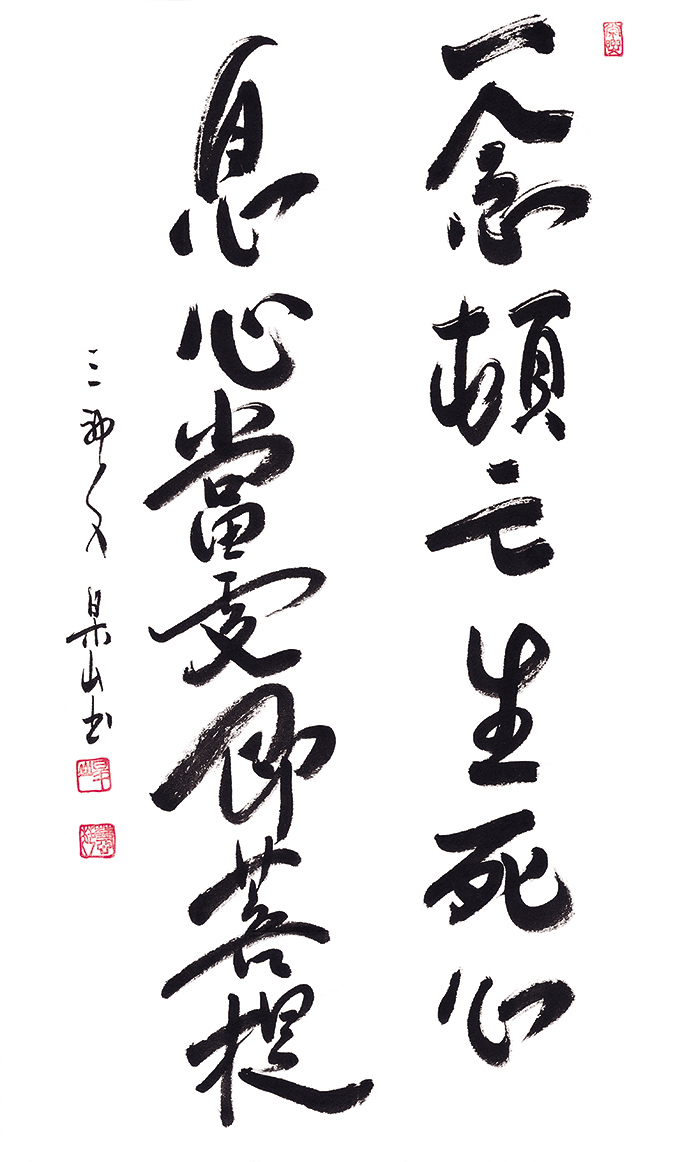 一念頓亡生死心
息心當處即菩提
三神人 杲山書